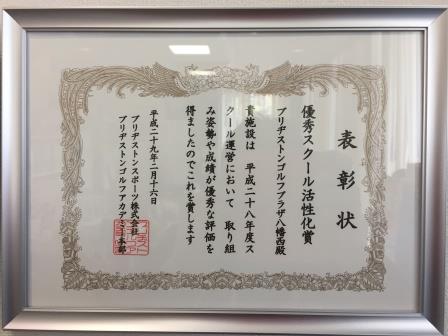 表彰状
優秀スクール活性化賞
ブリヂストンゴルフプラザ八幡西殿
貴施設は 平成二十八年度ス
クール運営において 取り組
み姿勢や成績が優秀な評価を
得ましたのでこれを賞します
平成二十九年二月十六日
ブリヂストンスポーツ株式会社
ブリヂストンゴルフアカデミー本部